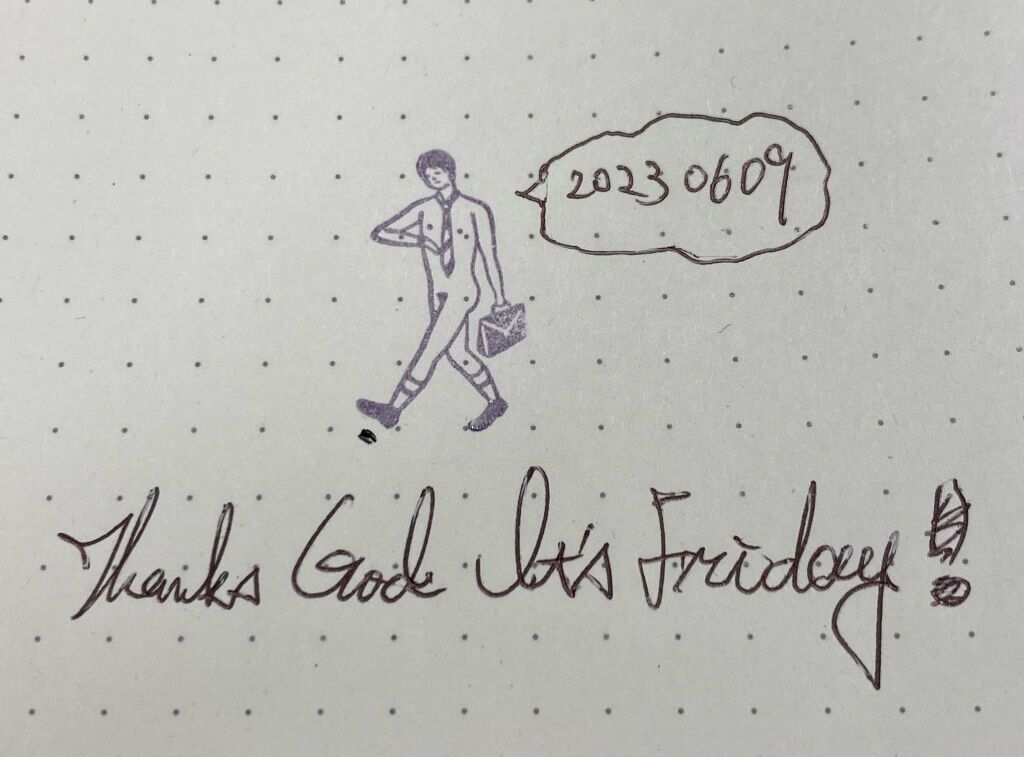 2023 0609
Thanks God It's Friday!